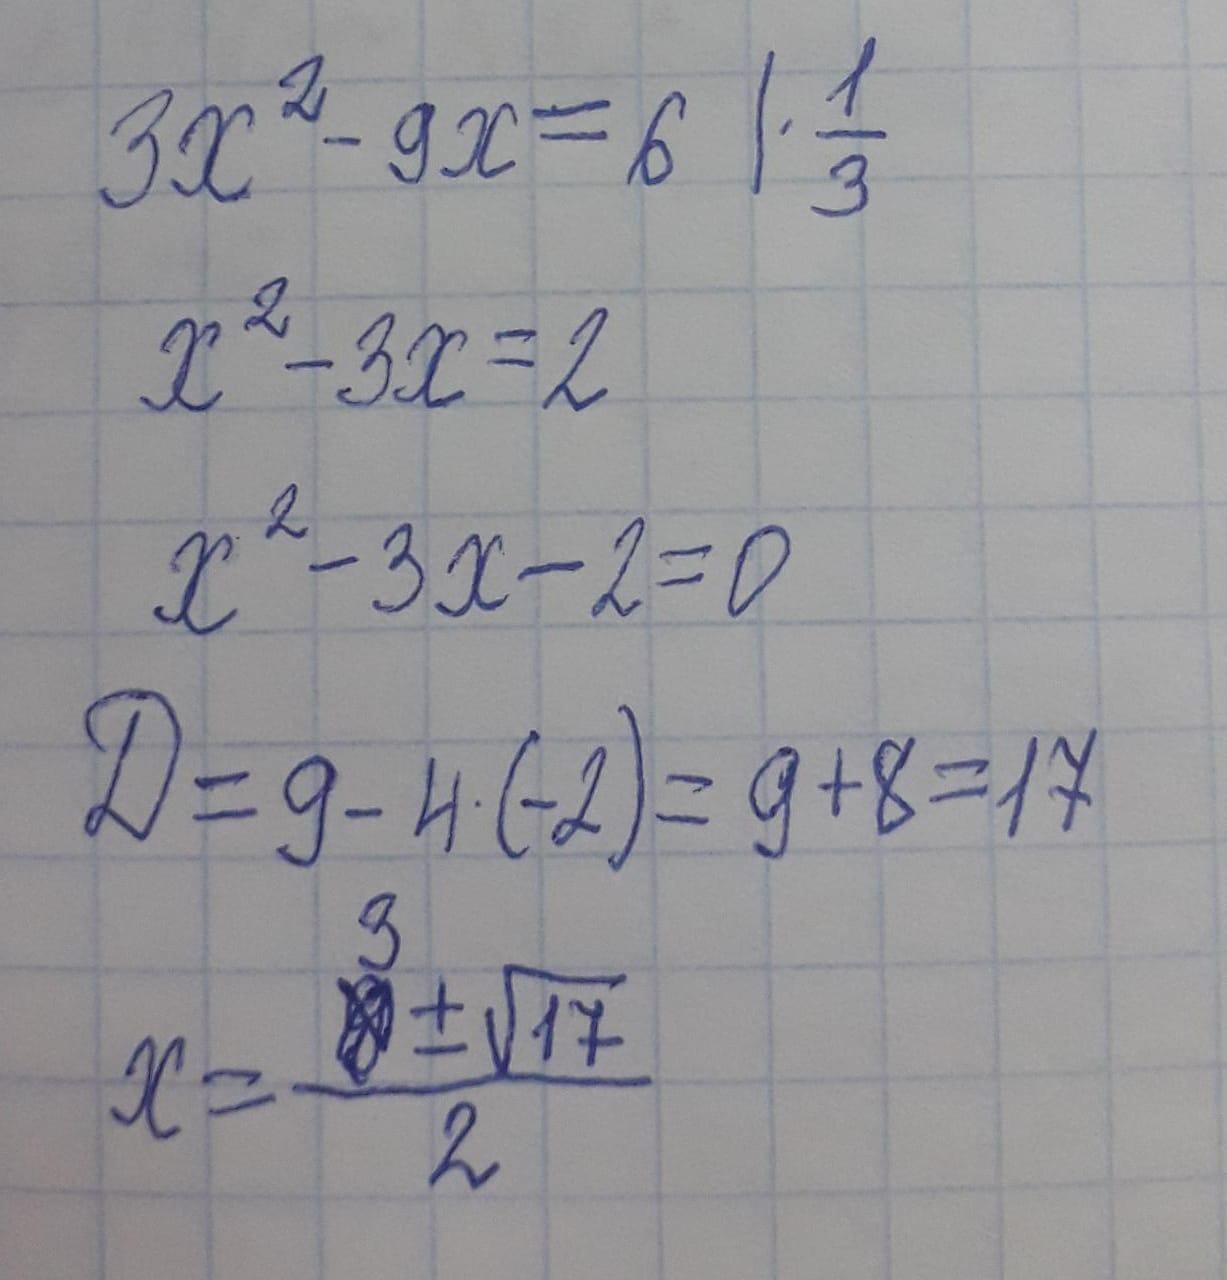 3x² - 9x = 6 | · 1/3
x² - 3x = 2
x² - 3x - 2 = 0
D = 9 - 4 · (-2) = 9 + 8 = 17
x = (3 ± √17)/2